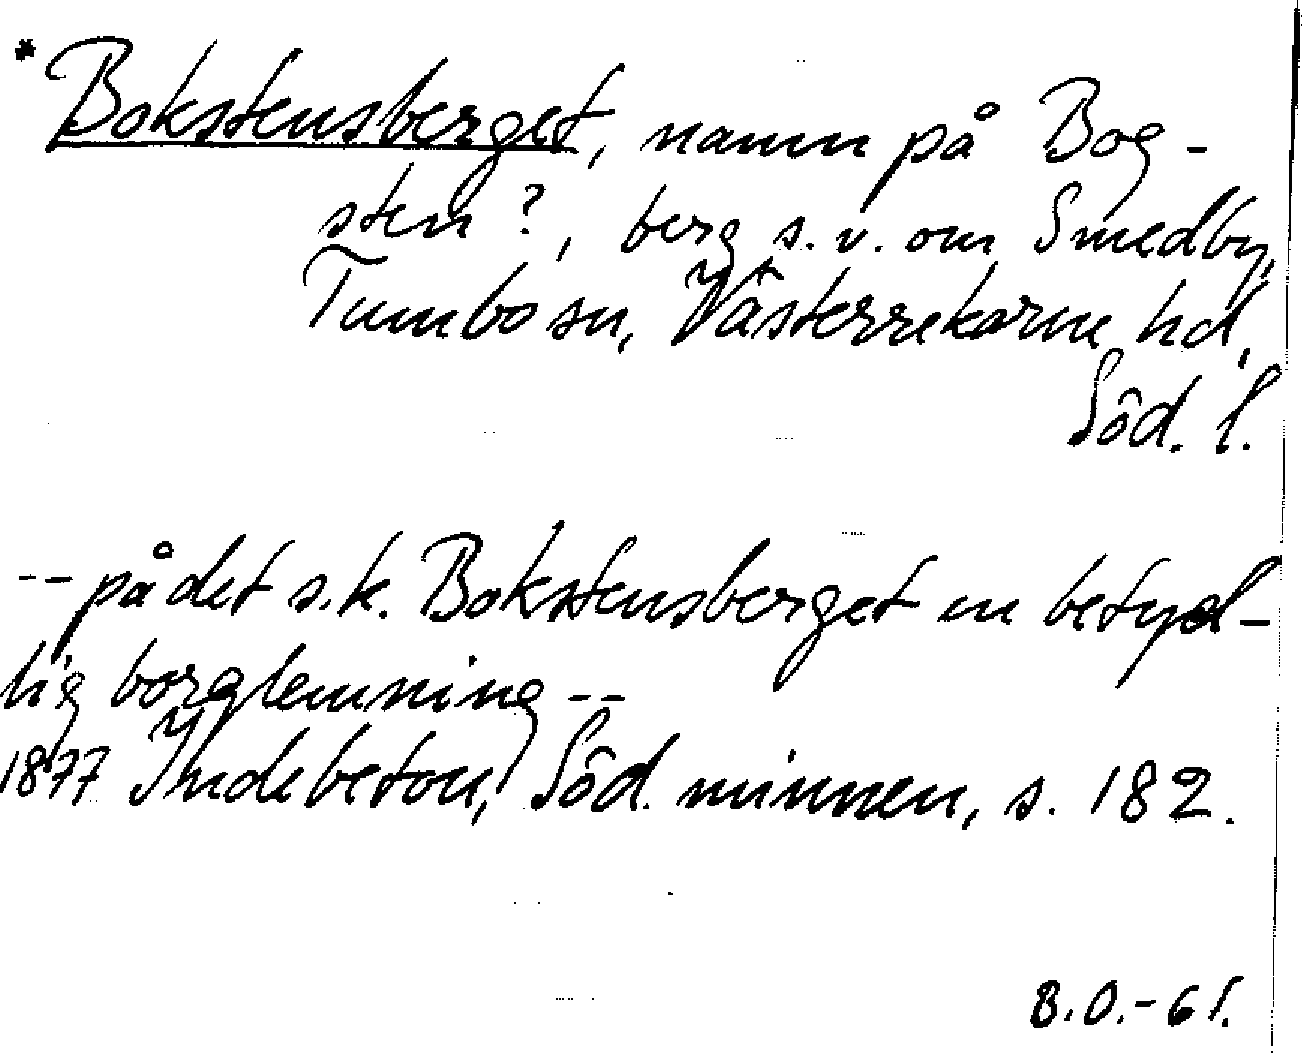 *Bokstensberget, namn på Bog-
sten?, berg s.v. om Smedby,
Tumbo sn, Västerrekarne hd,
Söd. l.
-- på det s.k. Bokstensberget en betyd-
lig borglemning --
1877 Indebetou, Söd. minnen, s. 182.
B.O.-61.